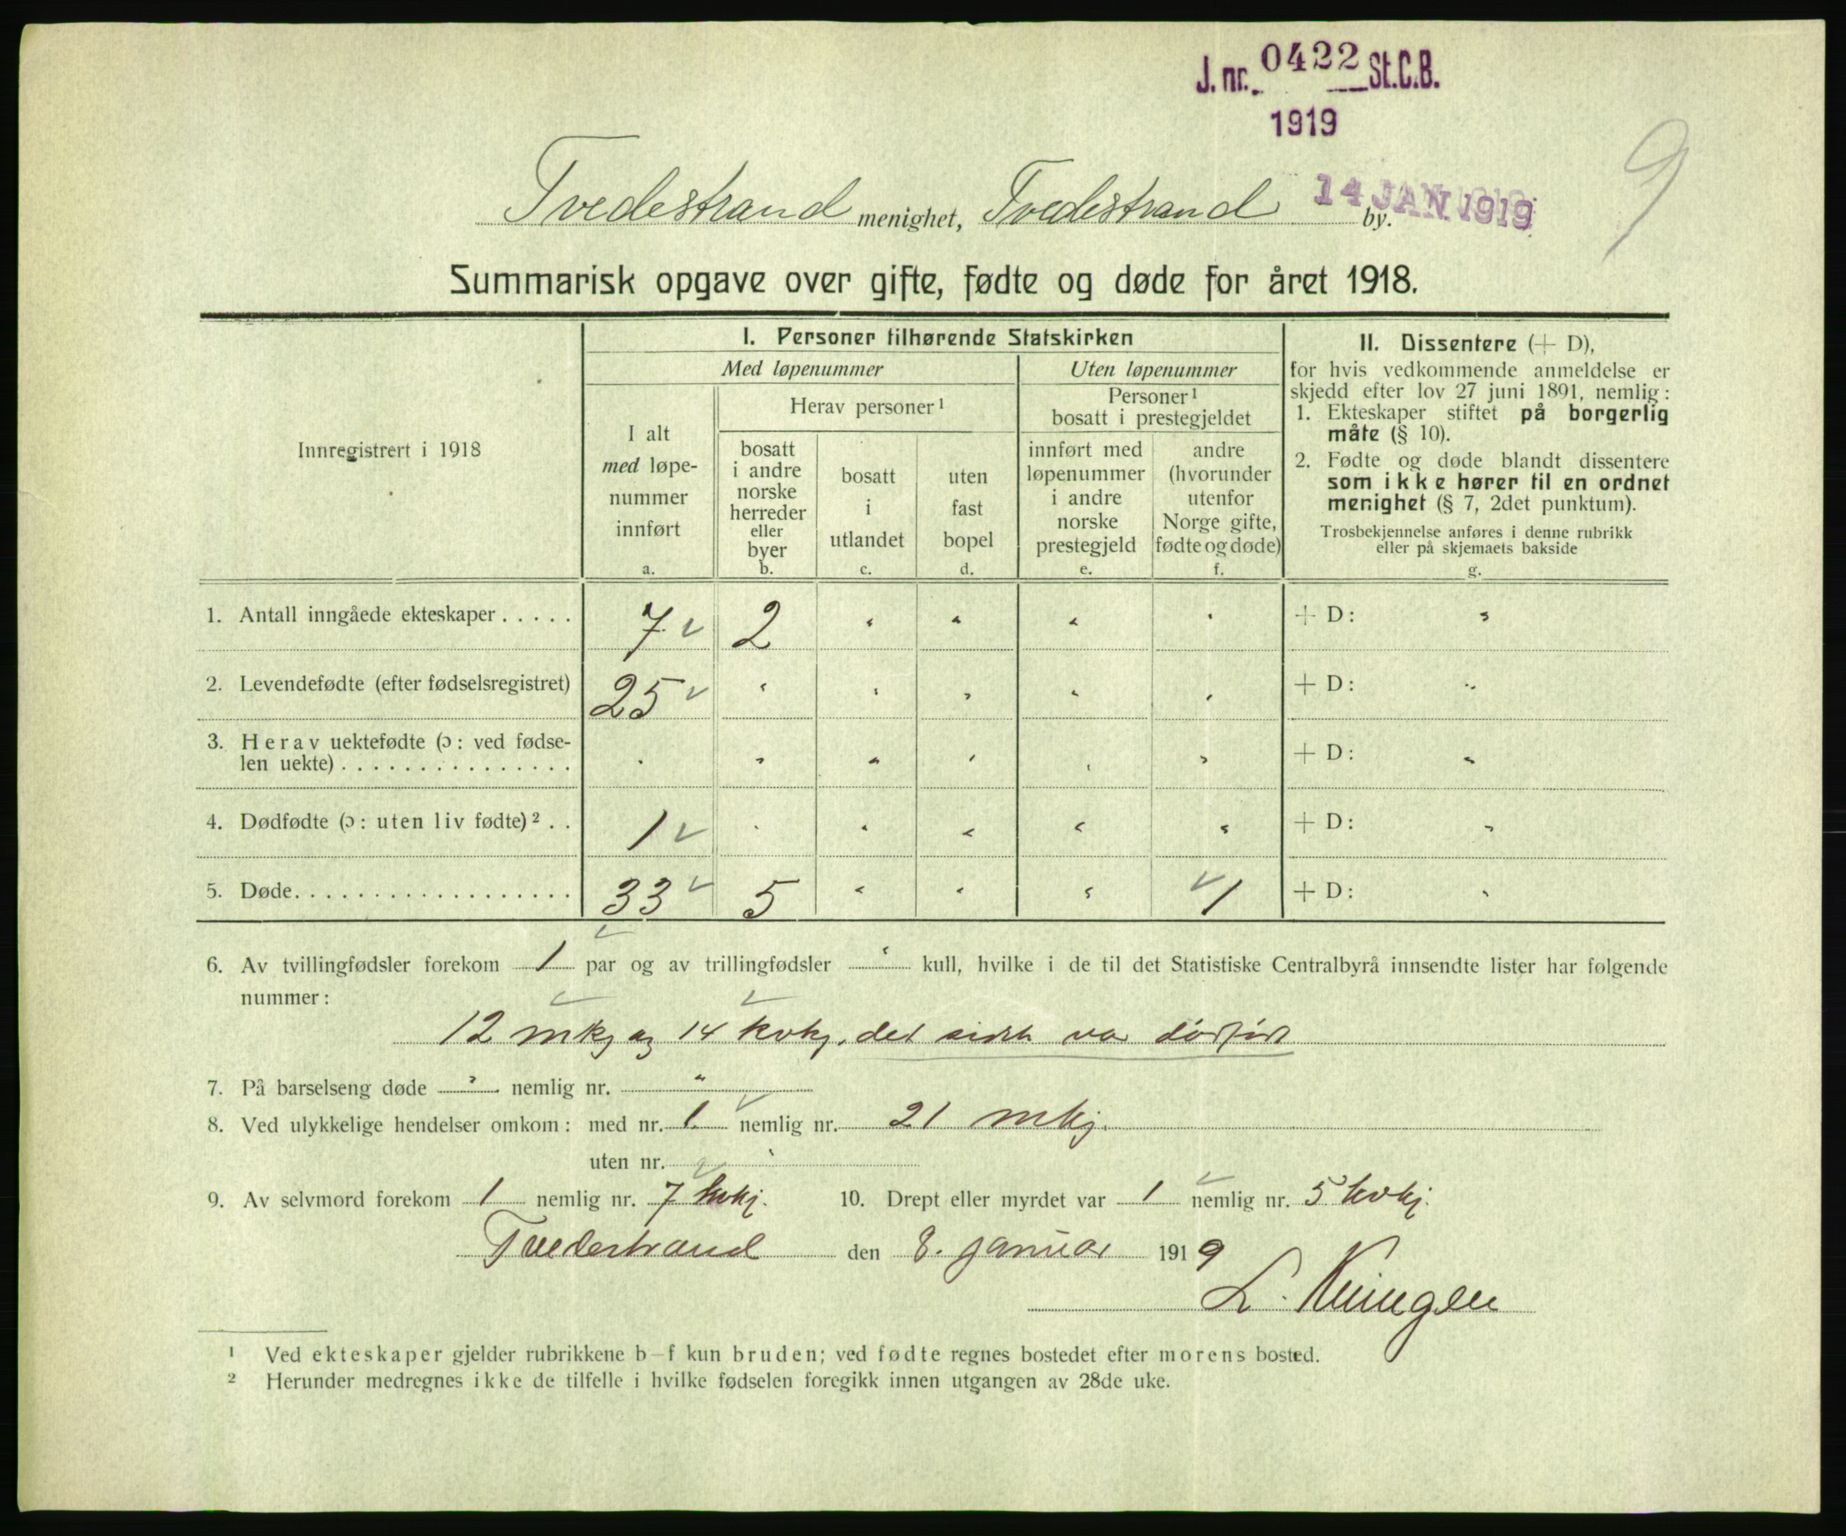 J. nr. 0422 St.C.B.
1919
9
14 JAN 1919
Tvedestrand menighet, Tvedestrand by.
Summarisk opgave over gifte, fødte og døde for året 1918.
Innregistrert i 1918
I. Personer tilhørende Statskirken
Med løpenummer
Uten løpenummer
I alt
med løpe-
nummer
innført
a.
Herav personer¹
bosatt
i andre
norske
herreder
eller
byer
b.
bosatt
i
utlandet
c.
uten
fast
bopel
d.
Personer¹
bosatt i prestegjeldet
innført med
løpenummer
i andre
norske
prestegjeld
e.
andre
(hvorunder
utenfor
Norge gifte,
fødte og døde)
f.
II. Dissentere (+ D),
for hvis vedkommende anmeldelse er
skjedd efter lov 27 juni 1891, nemlig:
1. Ekteskaper stiftet på borgerlig
måte (§ 10).
2. Fødte og døde blandt dissentere
som ikke hører til en ordnet
menighet (§ 7, 2det punktum).
Trosbekjennelse anføres i denne rubrikk
eller på skjemaets bakside
g.
1. Antall inngåede ekteskaper . . . . . 7 2 " " " " + D: "
2. Levendefødte (efter fødselsregistret) 25 " " " " " + D: "
3. Herav uektefødte (ɔ: ved fødse-
len uekte) . . . . . . . . . . . . . . . " " " " " " + D: "
4. Dødfødte (ɔ: uten liv fødte)² . . 1 " " " " " + D: "
5. Døde. . . . . . . . . . . . . . . . . . 33 5 " " " 1 + D: "
6. Av tvillingfødsler forekom 1 par og av trillingfødsler " kull, hvilke i de til det Statistiske Centralbyrå innsendte lister har følgende
nummer:
12 mkj og 14 kvkj, det sidste var dødfødt
7. På barselseng døde " nemlig nr. "
8. Ved ulykkelige hendelser omkom: med nr. 1 nemlig nr. 21 mkj.
uten nr. "
9. Av selvmord forekom 1 nemlig nr. 7 kvkj. 10. Drept eller myrdet var 1 nemlig nr. 5 kvkj.
Tvedestrand den 8. januar 1919
L.
¹ Ved ekteskaper gjelder rubrikkene b–f kun bruden; ved fødte regnes bostedet efter morens bosted.
² Herunder medregnes ikke de tilfelle i hvilke fødselen foregikk innen utgangen av 28de uke.